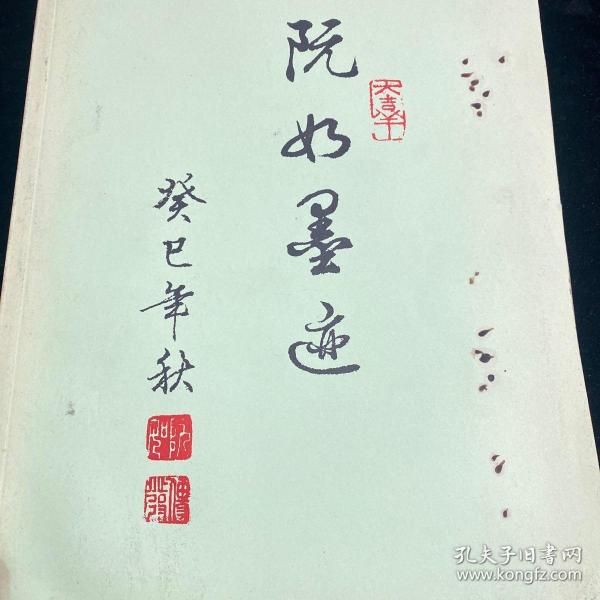 阮如墨迹
癸巳年秋
孔夫子旧书网
www.kongfz.com